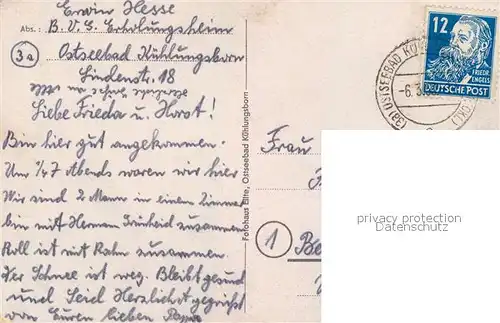 Erwin Hesse
Abs.: B.V.S. Erholungsheim
3a
Ostseebad Kühlungsborn
Lindenst. 18
Liebe Frieda u. Horst!
Bin hier gut angekommen.
Um 1/47 Abends waren wir hier
Wir sind 2 Mann in einem Zimmer
bin mit Herman zusammen
Roll ist mit Rahn zusammen.
Der Schnee ist weg. Bleibt gesund
und Seid Herzlichst gegrüßt
von Euren lieben Papa
Fotohaus Eite, Ostseebad Kühlungsborn
12
FRIEDR.
ENGELS
DEUTSCHE POST
(3a) OSTSEEBAD KÜ
-6.3.
Frau
1
Be
privacy protection
Datenschutz